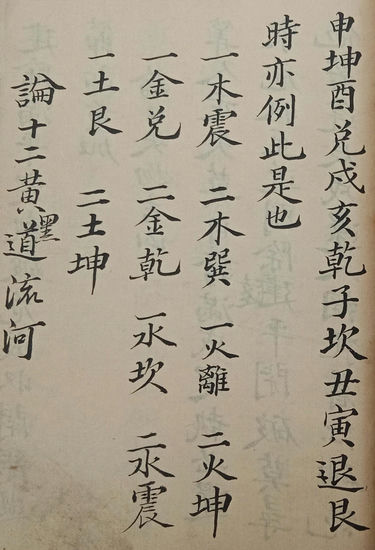 申坤酉兑戌亥乾子坎丑寅退艮
時亦例此是也
一木震 二木巽 一火離 二火坤
一金兑 二金乾 一水坎 二水震
一土艮 二土坤
論十二黄黑道流河